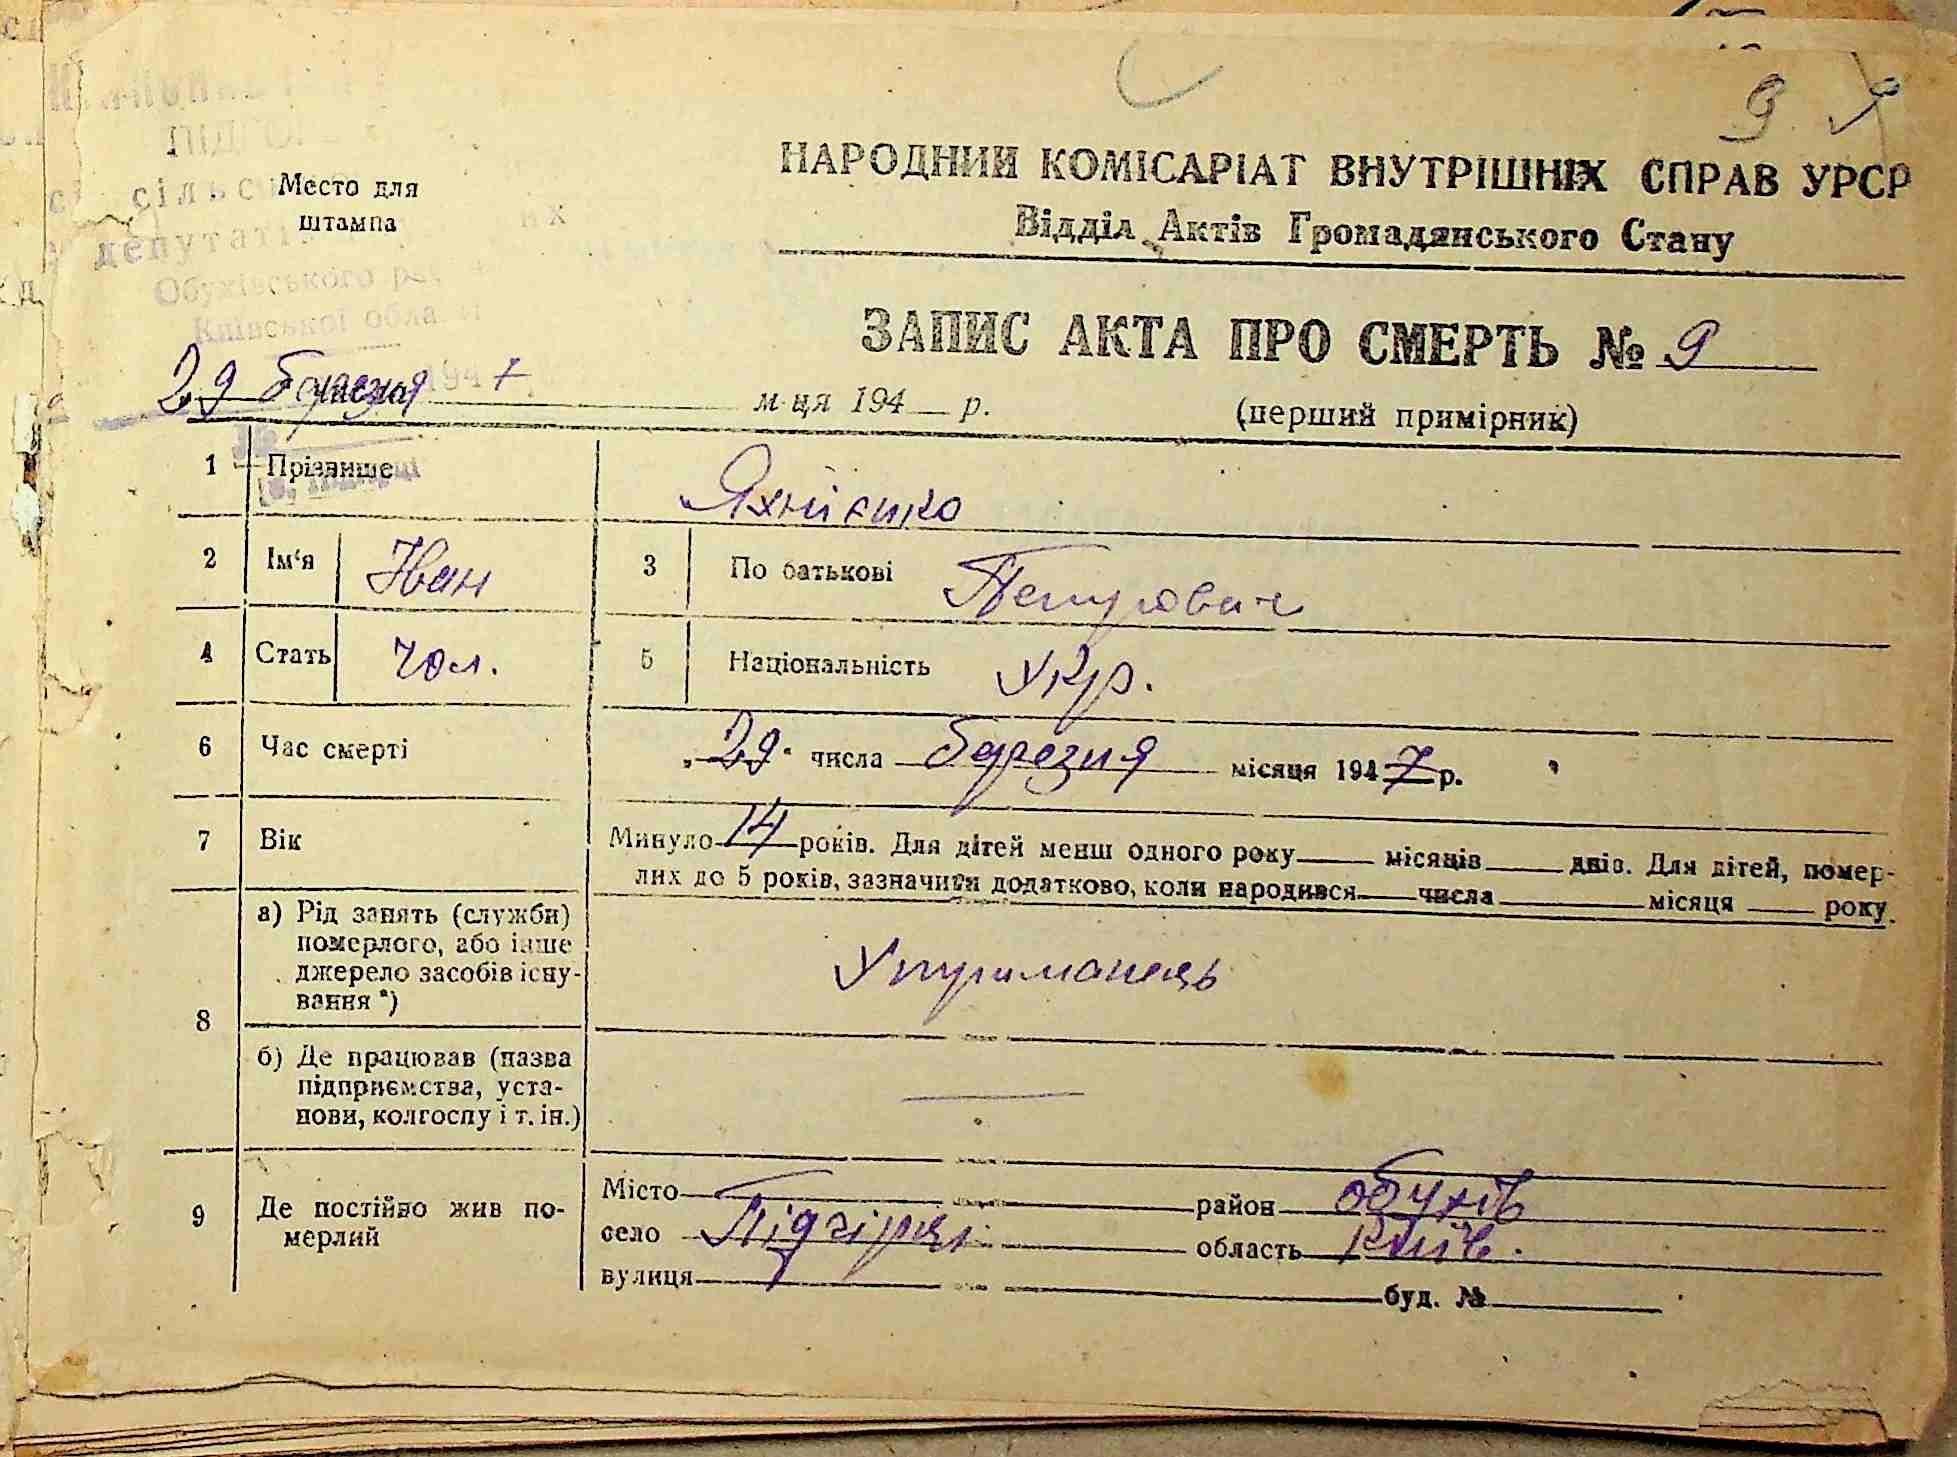 9.
Место для
штампа
сільс
депутаті
их
Обухівського
Київської обла
НАРОДНИЙ КОМІСАРІАТ ВНУТРІШНІХ СПРАВ УРСР
Відділ Актів Громадянського Стану
ЗАПИС АКТА ПРО СМЕРТЬ № 9
29 березня 1947 м-ця 194 р.
(перший примірник)
1 Прізвище Яхнієнко
2 Ім'я Иван 3 По батькові Петрович
4 Стать чол. 5 Національність Укр.
6 Час смерті „29" числа березня місяця 1947 р.
7 Вік Минуло 14 років. Для дітей менш одного року місяців днів. Для дітей, помер-
лих до 5 років, зазначити додатково, коли народився числа місяця року.
8 а) Рід занять (служби)
померлого, або інше
джерело засобів існу-
вання *)
Утриманець
б) Де працював (назва
підприємства, уста-
нови, колгоспу і т. ін.)
9 Де постійно жив по-
мерлий
Місто район Обухів
село Підгірці область Київ.
вулиця буд. №